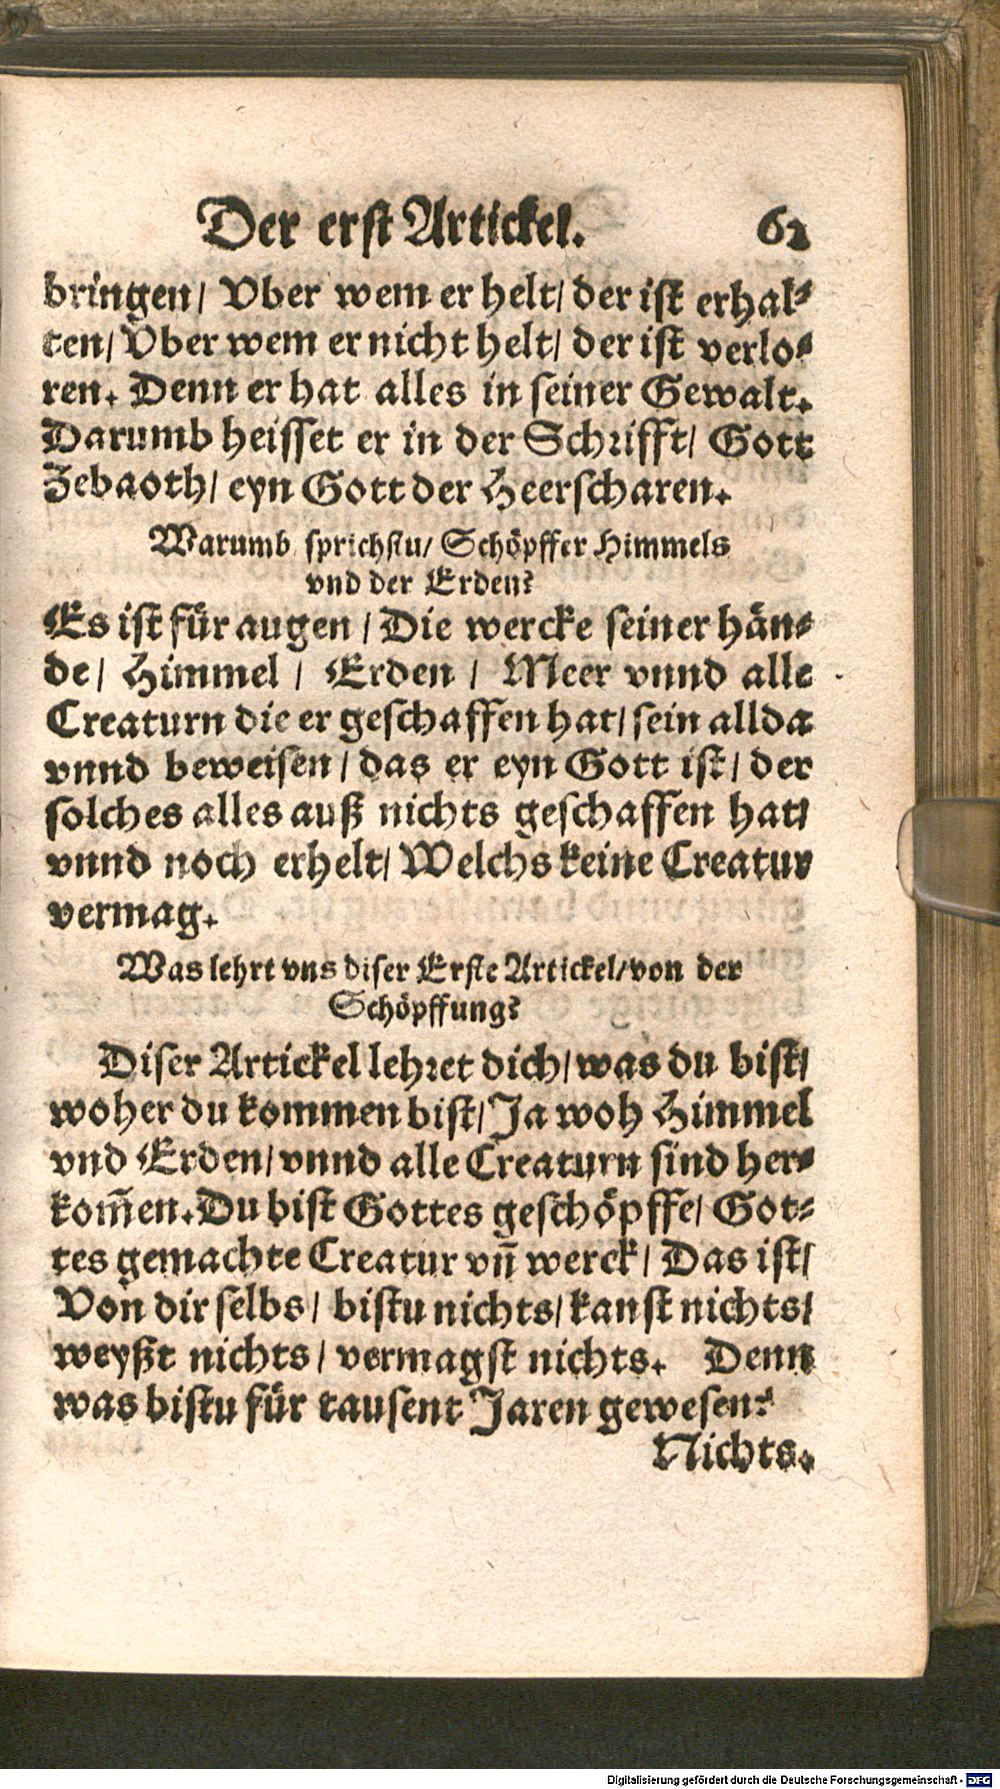 Der erst Artickel. 62
bringen/ Vber wem er helt/ der ist erhal-
ten/ Vber wem er nicht helt/ der ist verlo-
ren. Denn er hat alles in seiner Gewalt.
Darumb heisset er in der Schrifft/ Gott
Zebaoth/ eyn Gott der Heerscharen.
Warumb sprichstu/ Schöpffer Himmels
vnd der Erden?
Es ist für augen / Die wercke seiner hän-
de/ Himmel / Erden / Meer vnnd alle
Creaturn die er geschaffen hat/ sein allda
vnnd beweisen / das er eyn Gott ist / der
solches alles auß nichts geschaffen hat/
vnnd noch erhelt/ Welchs keine Creatur
vermag.
Was lehrt vns diser Erste Artickel/ von der
Schöpffung?
Diser Artickel lehret dich/ was du bist/
woher du kommen bist/ Ja woh Himmel
vnd Erden/ vnnd alle Creaturn sind her-
kom̄en. Du bist Gottes geschöpffe/ Got-
tes gemachte Creatur vn̄ werck / Das ist/
Von dir selbs/ bistu nichts/ kanst nichts/
weyßt nichts / vermagst nichts. Denn
was bistu für tausent Jaren gewesen?
Nichts.
Digitalisierung gefördert durch die Deutsche Forschungsgemeinschaft - DFG